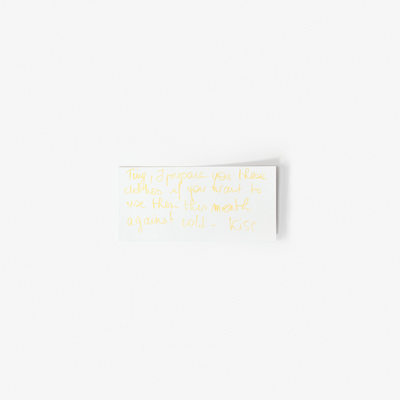 I prepare you these
clothes if you want to
use them this month
against cold -